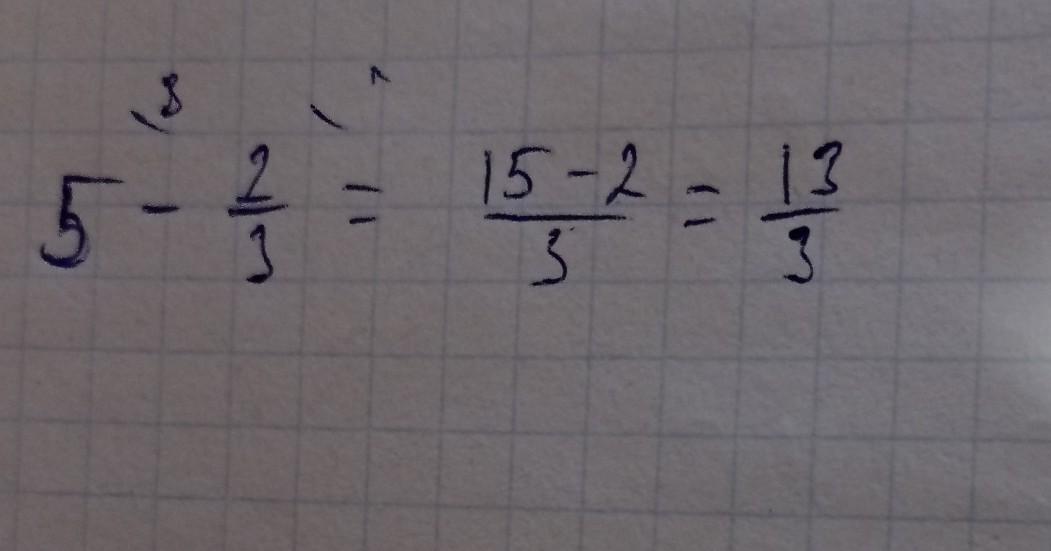 5\3 - 2/3\1 = (15-2)/3 = 13/3